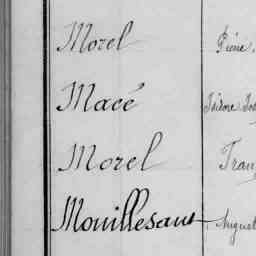 Morel Piérre
Macé Isidore
Morel Fran
Mouillesaux August